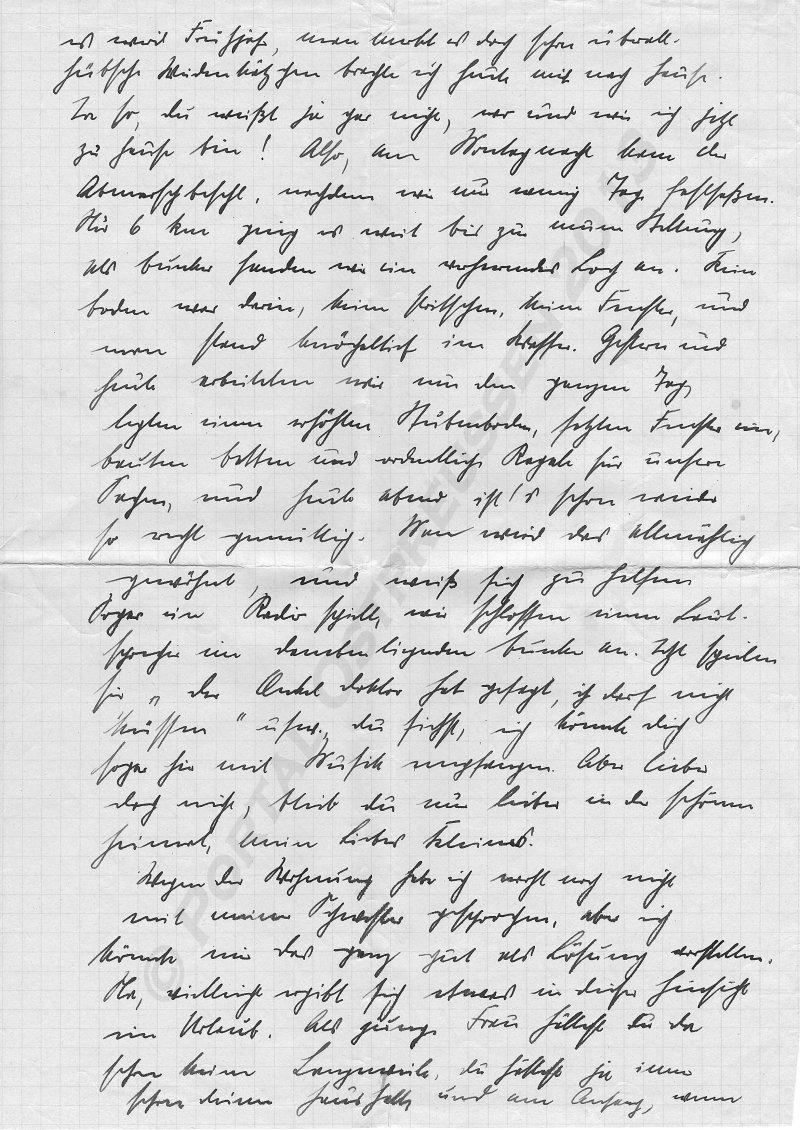 es wird Frühjahr, man merkt es doch schon überall.
Hübsche Weidenkätzchen brachte ich heute mit nach Hause.
Ja so, du weißt ja gar nicht, wo und wie ich jetzt
zu Hause bin! Also, am Montag nacht kam der
Abmarschbefehl, nachdem wir nur wenig Tage festsaßen.
Nur 6 km ging es weit bis zu neuen Stellung,
als Bunker fanden wir ein verheerendes Loch an. Kein
Boden war darin, keine Pritschen, keine Fenster, und
man stand knöcheltief im Wasser. Gestern und
heute arbeiteten wir nun den ganzen Tag,
legten einen erhöhten Stubenboden, setzten Fenster ein,
bauten Betten und ordentliche Regale für unsere
Sachen, und heute abend ist's schon wieder
so recht gemütlich. Man wird das allmählich
gewöhnt, und weiß sich zu helfen.
Sogar ein Radio spielt, wir schlossen einen Laut-
sprecher im danebenliegenden Bunker an. Jetzt spielen
sie „der Onkel Doktor hat gesagt, ich darf nicht
küssen" usw., du siehst, ich könnte dich
sogar hier mit Musik empfangen. Aber lieber
doch nicht, bleib du nur lieber in der schönen
Heimat, mein liebes Kleines.
Wegen der Wohnung habe ich wohl noch nicht
mit meiner Schwester gesprochen, aber ich
könnte mir das ganz gut als Lösung vorstellen.
Na, vielleicht ergibt sich etwas in dieser Hinsicht
im Urlaub. Als junge Frau hättest du da
schon keine Langeweile, du hättest ja immer
schon deinen Haushalt, und am Anfang, wenn
© PORTAL OSTPREUSSEN 2015